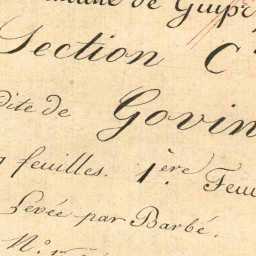 de Guip
Section C
dite de Govin
feuilles. 1ère Feu
Levée par Barbé.
N.o